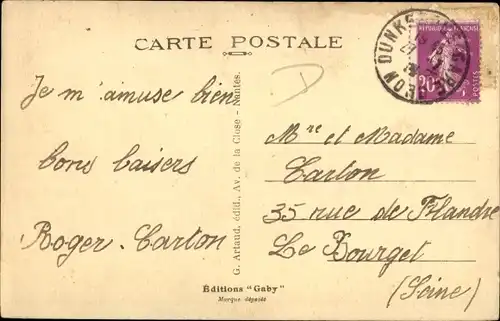 CARTE POSTALE
REPUBLIQUE FRANÇAISE
20
POSTES
DUNKERQUE GARE
Je m'amuse bien
bons baisers
Roger. Carton
G. Artaud, édit., Av. de la Close - Nantes.
Mre et Madame
Carton
35 rue de Flandre
Le Bourget
(Seine)
Éditions "Gaby"
Marque déposée